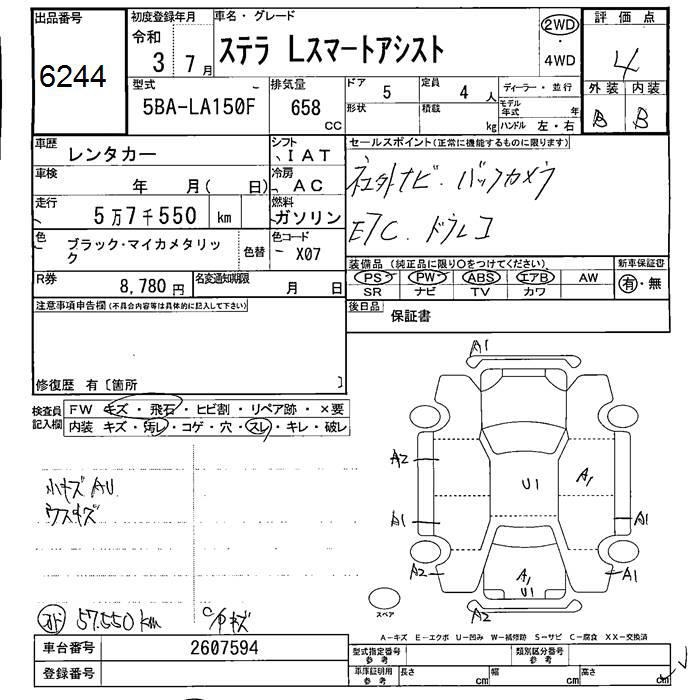 出品番号
6244
初度登録年月
令和
3 7月
車名・グレード
ステラ Lスマートアシスト
2WD
・
4WD
評価点
4
外装 内装
B B
型式
5BA-LA150F
排気量
658
CC
ドア
5
形状
定員
4 人
積載
kg
ディーラー・並行
モデル年式 年
ハンドル 左・右
車歴
レンタカー
シフト
IAT
車検
年 月( 日)
冷房
AC
走行
5万7千550 km
燃料
ガソリン
色
ブラック・マイカメタリック
色替
色コード
X07
R券
8,780 円
名変通知期限
月 日
セールスポイント(正常に機能するものに限ります)
社外ナビ・バックカメラ
ETC. ドラレコ
装備品 (純正品に限り○をつけてください)
PS・PW・ABS・エアB AW
SR ナビ TV カワ
新車保証書
有・無
後日品
保証書
注意事項申告欄(不具合内容等は具体的に記入して下さい)
修復歴 有〔箇所 〕
検査員
記入欄
FW キズ・飛石・ヒビ割・リペア跡・×要
内装 キズ・汚レ・コゲ・穴・スレ・キレ・破レ
小キズ AU
ウスキズ
57.550km
A1
A2
A1
A2
U1
A1
A1
A1
A1
U1
A2
スペア
A-キズ E-エクボ U-凹み W-補修跡 S-サビ C-腐食 XX-交換済
車台番号
2607594
登録番号
型式指定番号
参考
類別区分番号
参考
車庫証明用
参考
長さ cm
幅 cm
高さ cm